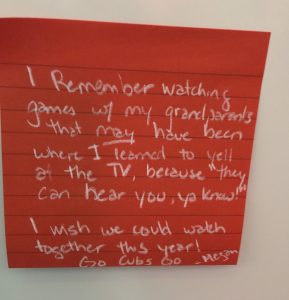 I Remember watching
games w/ my grandparents
that may have been
where I learned to yell
at the TV, because "they
can hear you, ya know!"
I wish we could watch
together this year!
Go Cubs Go -Megan